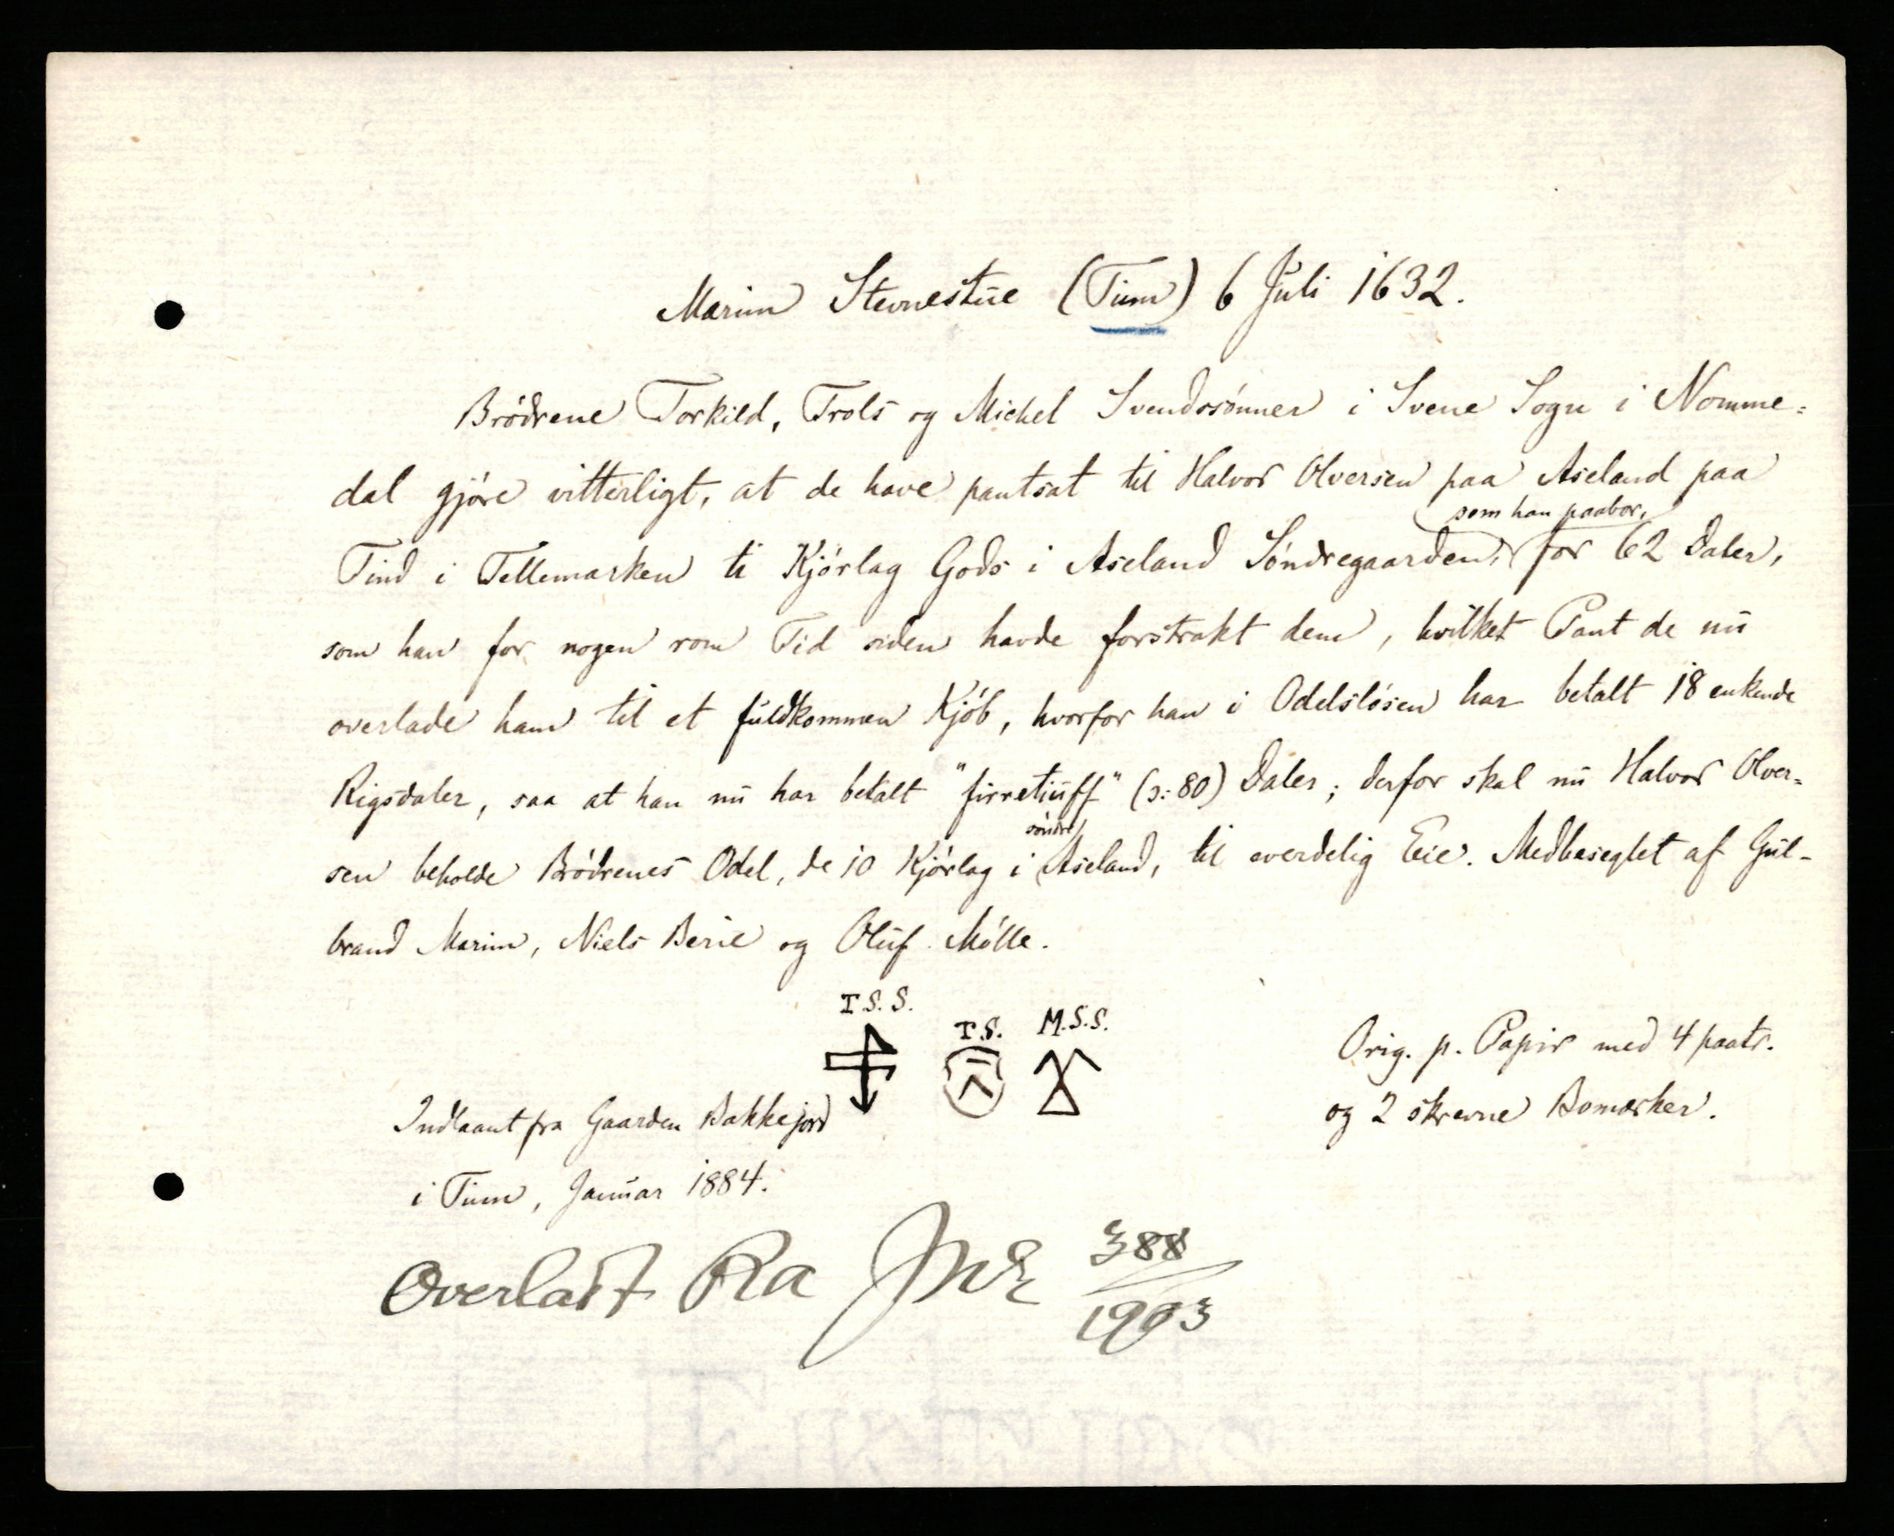 Marim Stevnestue (Tinn) 6 Juli 1632.
Brödrene Torkild, Trols og Michel Svendssönner i Svene Sogn i Nomme-
dal gjöre vitterligt, at de have pantsat til Halvor Olversen paa Aseland paa
som han paabor,
Tind i Tellemarken ti Kjörlag Gods i Aseland Söndregaarden, for 62 Daler,
som han for nogen rom Tid siden havde forstrakt dem, hvilket Pant de nu
overlade ham til et fuldkommen Kjöb, hvorfor han i Odelslösen har betalt 18 enkende
Rigsdaler, saa at han nu har betalt "firretiuff" (ɔ: 80) Daler; derfor skal nu Halvor Olver-
söndre
sen beholde Brödrenes Odel, de 10 Kjörlag i Aseland, til everdelig Eie. Medbeseglet af Gul-
brand Marim, Niels Berie og Oluf Mölle.
T S. S. T. S. M. S. S.
Orig. p. Papir med 4 paatr.
og 2 skrevne Bomærker.
Indlaant fra Gaarden Bakkejord
i Tinn, Januar 1884.
Overladt Ra 388
1903